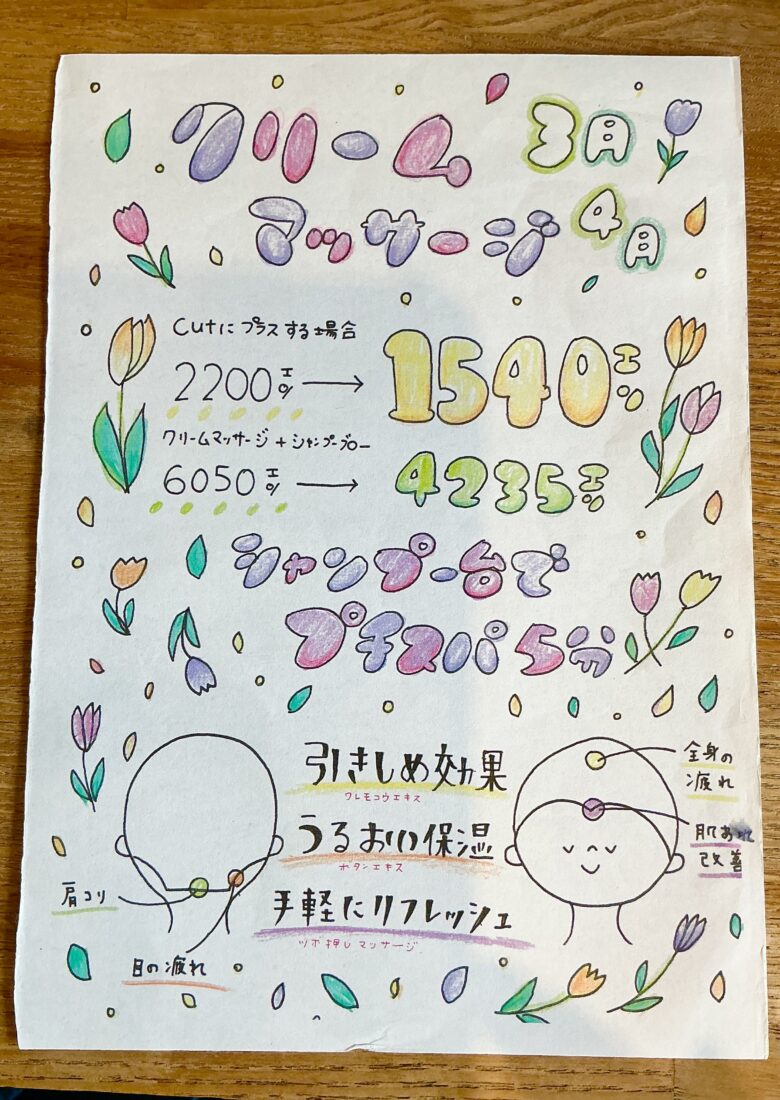 クリーム 3月
マッサージ 4月
Cutにプラスする場合
2200エン → 1540エン
クリームマッサージ + シャンプーブロー
6050エン → 4235エン
シャンプー台で
プチスパ5分
引きしめ効果
ワレモコウエキス
うるおい保湿
ボタンエキス
手軽にリフレッシュ
ツボ押しマッサージ
肩コリ
目の疲れ
全身の
疲れ
肌あれ
改善